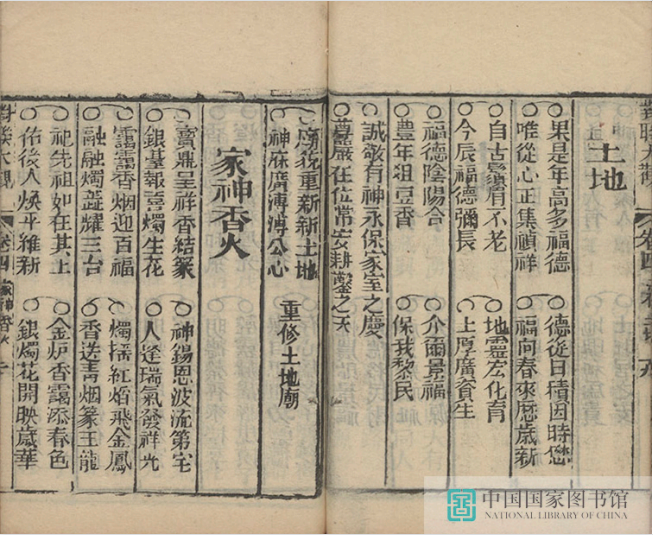 對聯大觀 卷四
土地
○果是年高多福德 ○德從日積因時懋
○唯從心正集禎祥 ○福向春來歷歲新
○自古鬚眉不老 ○地靈宏化育
○今辰福德彌長 ○土厚廣資生
○福德陰陽合 ○介爾景福
○豐年俎豆香 ○保我黎民
○誠敬有神永保家至之慶
○嚴在位常安耕鑿之天
○廟貌重新新土地 重修土地廟
○神庥廣溥溥公心
家神香火
○寶鼎呈祥香結篆 ○神錫恩波流第宅
○銀臺報喜燭生花 ○人逢瑞氣發祥光
○靄靄香烟迎百福 ○燭搖紅焰飛金鳳
○融融燭蕋耀三台 ○香送青烟篆玉龍
○祀先祖如在其上 ○金炉香靄添春色
○佑後人煥乎維新 ○銀燭花開映歲華
對聯大觀 卷四 家神香火
中国国家图书馆
NATIONAL LIBRARY OF CHINA